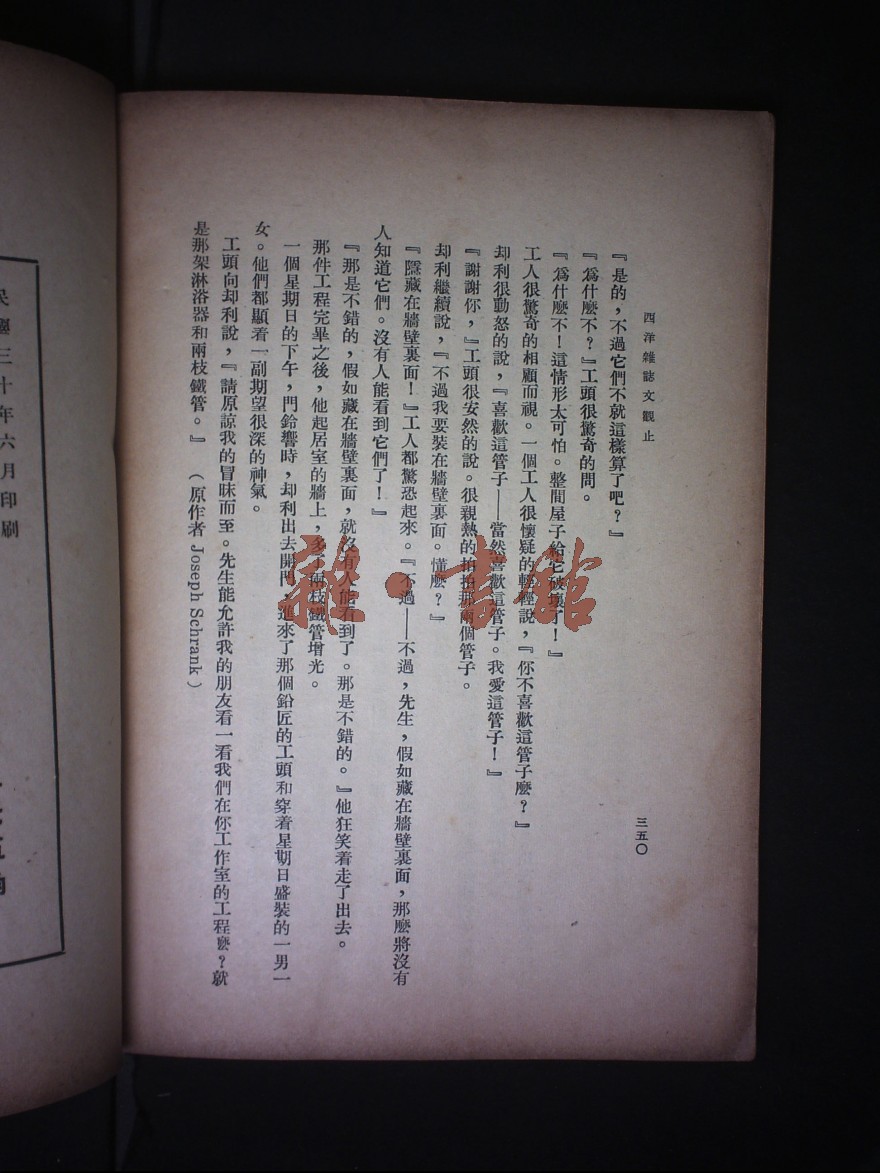 西洋雜誌文觀止
三五〇
『是的，不過它們不就這樣算了吧？』
『爲什麼不？』工頭很驚奇的問。
『爲什麼不！這情形太可怕。整間屋子給它破壞了！』
工人很驚奇的相顧而視。一個工人很懷疑的輕輕說，『你不喜歡這管子麼？』
却利很動怒的說，『喜歡這管子——當然喜歡這管子。我愛這管子！』
『謝謝你，』工頭很安然的說。很親熱的拍拍那兩個管子。
却利繼續說，『不過我要裝在牆壁裏面。懂麼？』
『隱藏在牆壁裏面！』工人都驚恐起來。『不過——不過，先生，假如藏在牆壁裏面，那麼將沒有
人知道它們。沒有人能看到它們了！』
『那是不錯的，假如藏在牆壁裏面，就沒有人能看到了。那是不錯的。』他狂笑着走了出去。
那件工程完畢之後，他起居室的牆上，多了兩枝鐵管增光。
一個星期日的下午，門鈴響時，却利出去開門，進來了那個鉛匠的工頭和穿着星期日盛裝的一男一
女。他們都顯着一副期望很深的神氣。
工頭向却利說，『請原諒我的冒昧而至。先生能允許我的朋友看一看我們在你工作室的工程麼？就
是那架淋浴器和兩枝鐵管。』　（原作者 Joseph Schrank）
三十年六月印刷
雜·書館